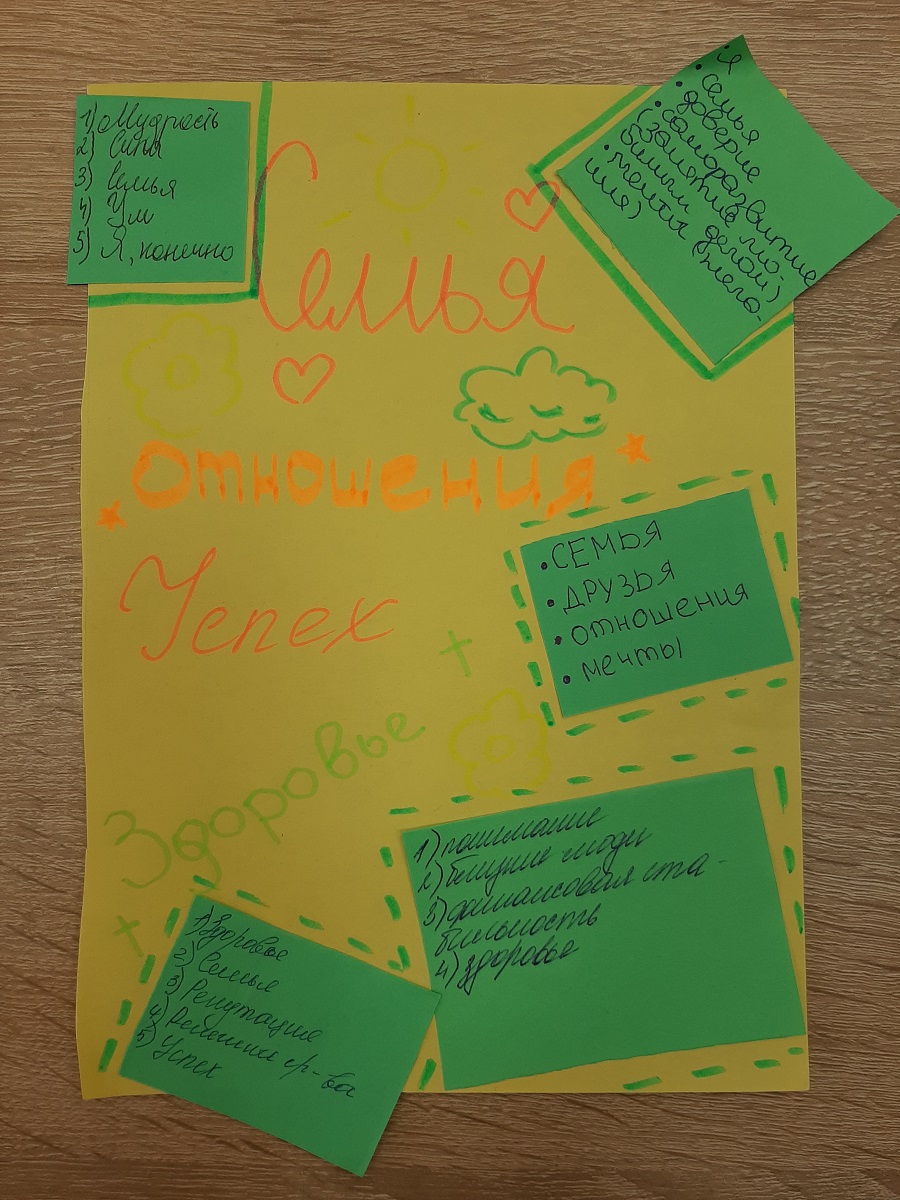 1) Мудрость
2) Сила
3) Семья
4) Ум
5) Я, конечно
• я
• семья
• доверие
• саморазвитие
(занятие лю-
бимым делом)
• мечта (жела-
ние)
Семья
отношения
Успех
• СЕМЬЯ
• ДРУЗЬЯ
• отношения
• мечты
Здоровье
1) понимание
2) близкие люди
3) финансовая ста-
бильность
4) здоровье
1) Здоровье
2) Семья
3) Репутация
4)
5) Успех